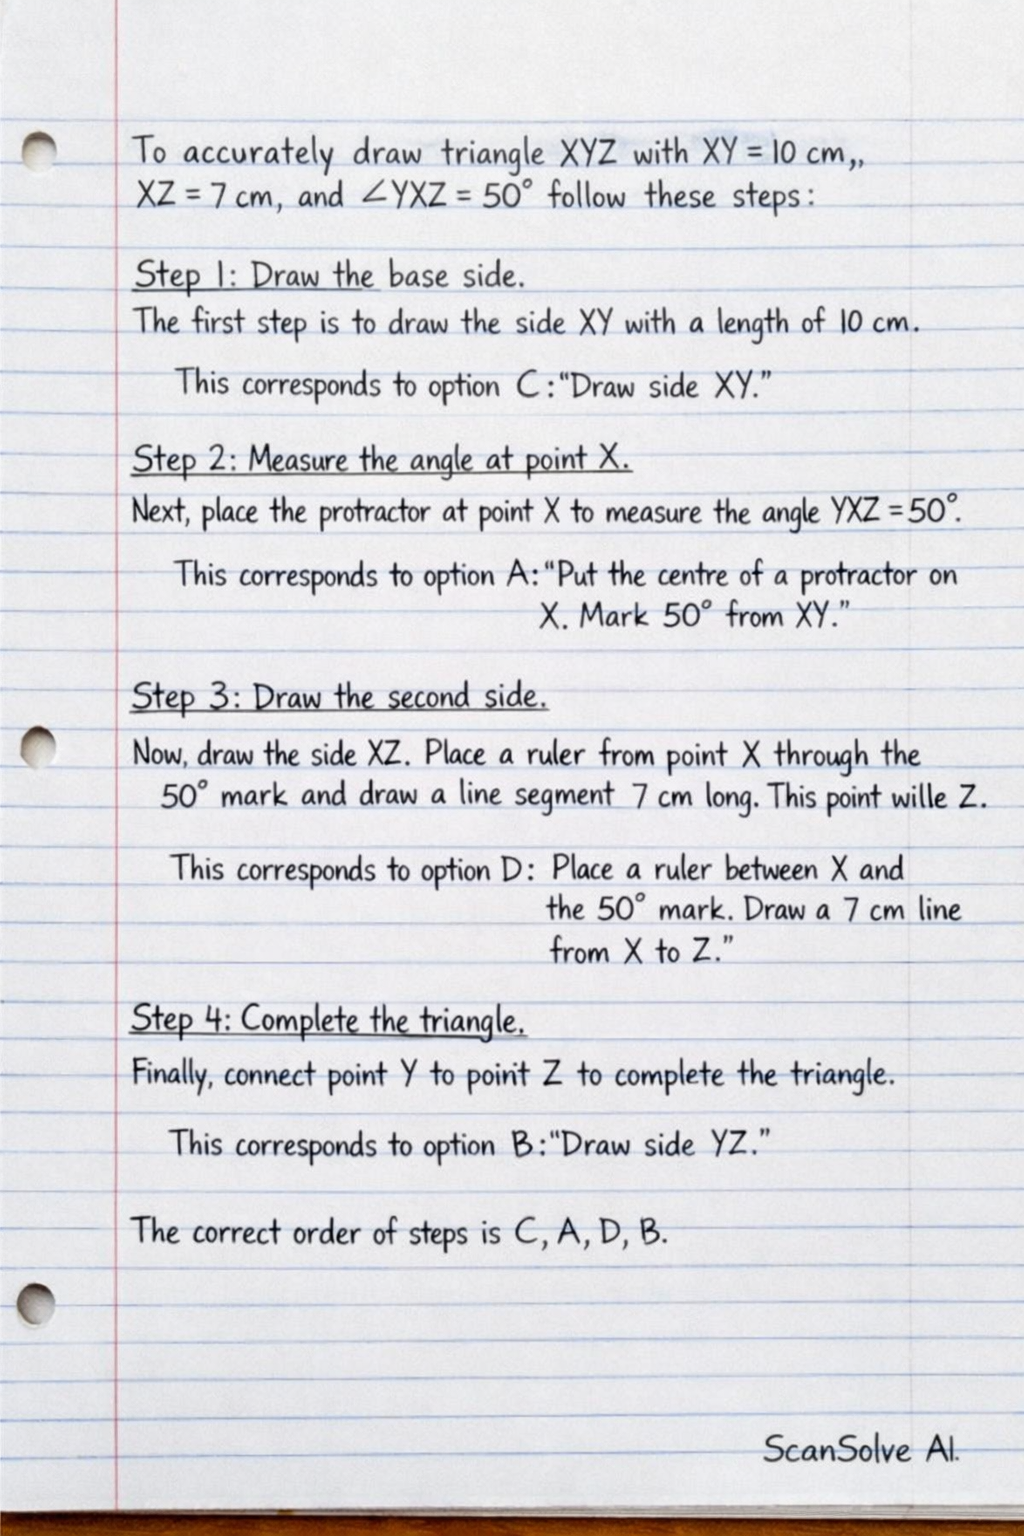 To accurately draw triangle XYZ with XY = 10 cm,,
XZ = 7 cm, and ∠YXZ = 50° follow these steps:
Step 1: Draw the base side.
The first step is to draw the side XY with a length of 10 cm.
This corresponds to option C:“Draw side XY.”
Step 2: Measure the angle at point X.
Next, place the protractor at point X to measure the angle YXZ = 50°.
This corresponds to option A:“Put the centre of a protractor on
X. Mark 50° from XY.”
Step 3: Draw the second side.
Now, draw the side XZ. Place a ruler from point X through the
50° mark and draw a line segment 7 cm long. This point wille Z.
This corresponds to option D: Place a ruler between X and
the 50° mark. Draw a 7 cm line
from X to Z.”
Step 4: Complete the triangle.
Finally, connect point Y to point Z to complete the triangle.
This corresponds to option B:“Draw side YZ.”
The correct order of steps is C, A, D, B.
ScanSolve AI.